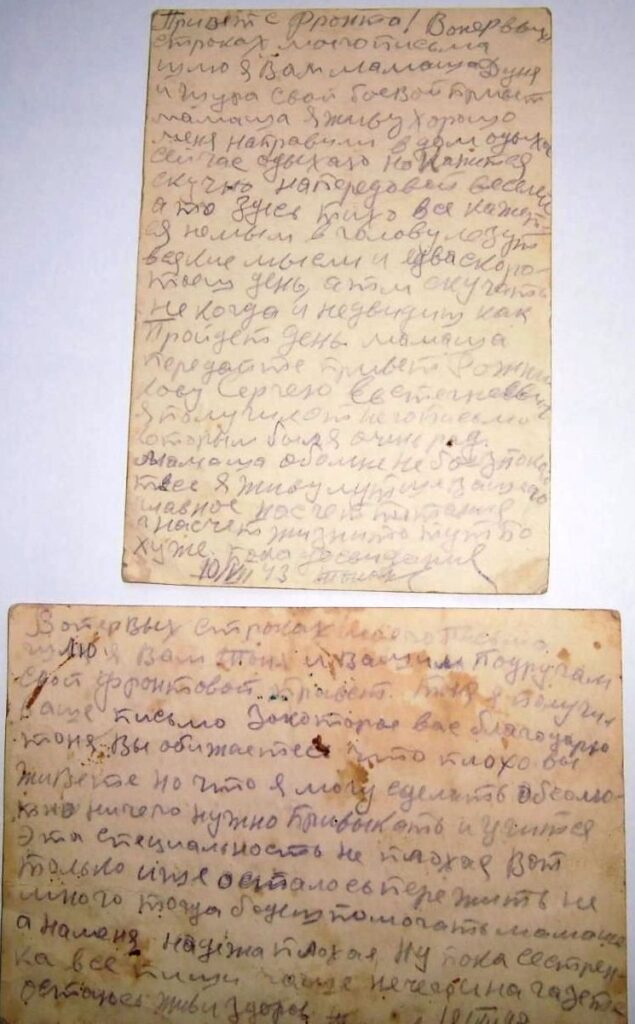 Привет с Фронта! Вопервых
строках моего письма
шлю я Вам мамаша Дуня
и Шура свой боевой привет
мамаша я живу хорошо
меня направили в дом одыха
сейчас одыхаю но кажится
скучно напередовой веселей
а то здесь тихо все кажет-
ся немым в голову лезут
всякие мысли и едва скоро-
таеш день, а там скучать
не когда и недвидиш как
пройдет день. мамаша
передайте привет
Сергею
я получил от него письмо
которым был я очинь рад.
мамаша обомне не беспокой
тесь я живу лутше
главное насчет питания
а насчет жизни то тут по
хуже. пока досвидания
10/VII 43
Вопервых строках моего письма
шлю я Вам Тоня и Вашим подругам
свой фронтовой привет. Тоня я получил
Ваше письмо закоторое вас благодарю
тоня Вы обижаетесь что плохо вы
живете но что я могу сделать обсолю-
тно ничего нужно привыкать и учится
Эта специальность не плохая Вот
только ище осталось пережить не
много тогда будеш помогать мамаше
а наменя надежа плохая Ну пока сестрен-
ка все пиши чаще
остаюсь жив и здоров